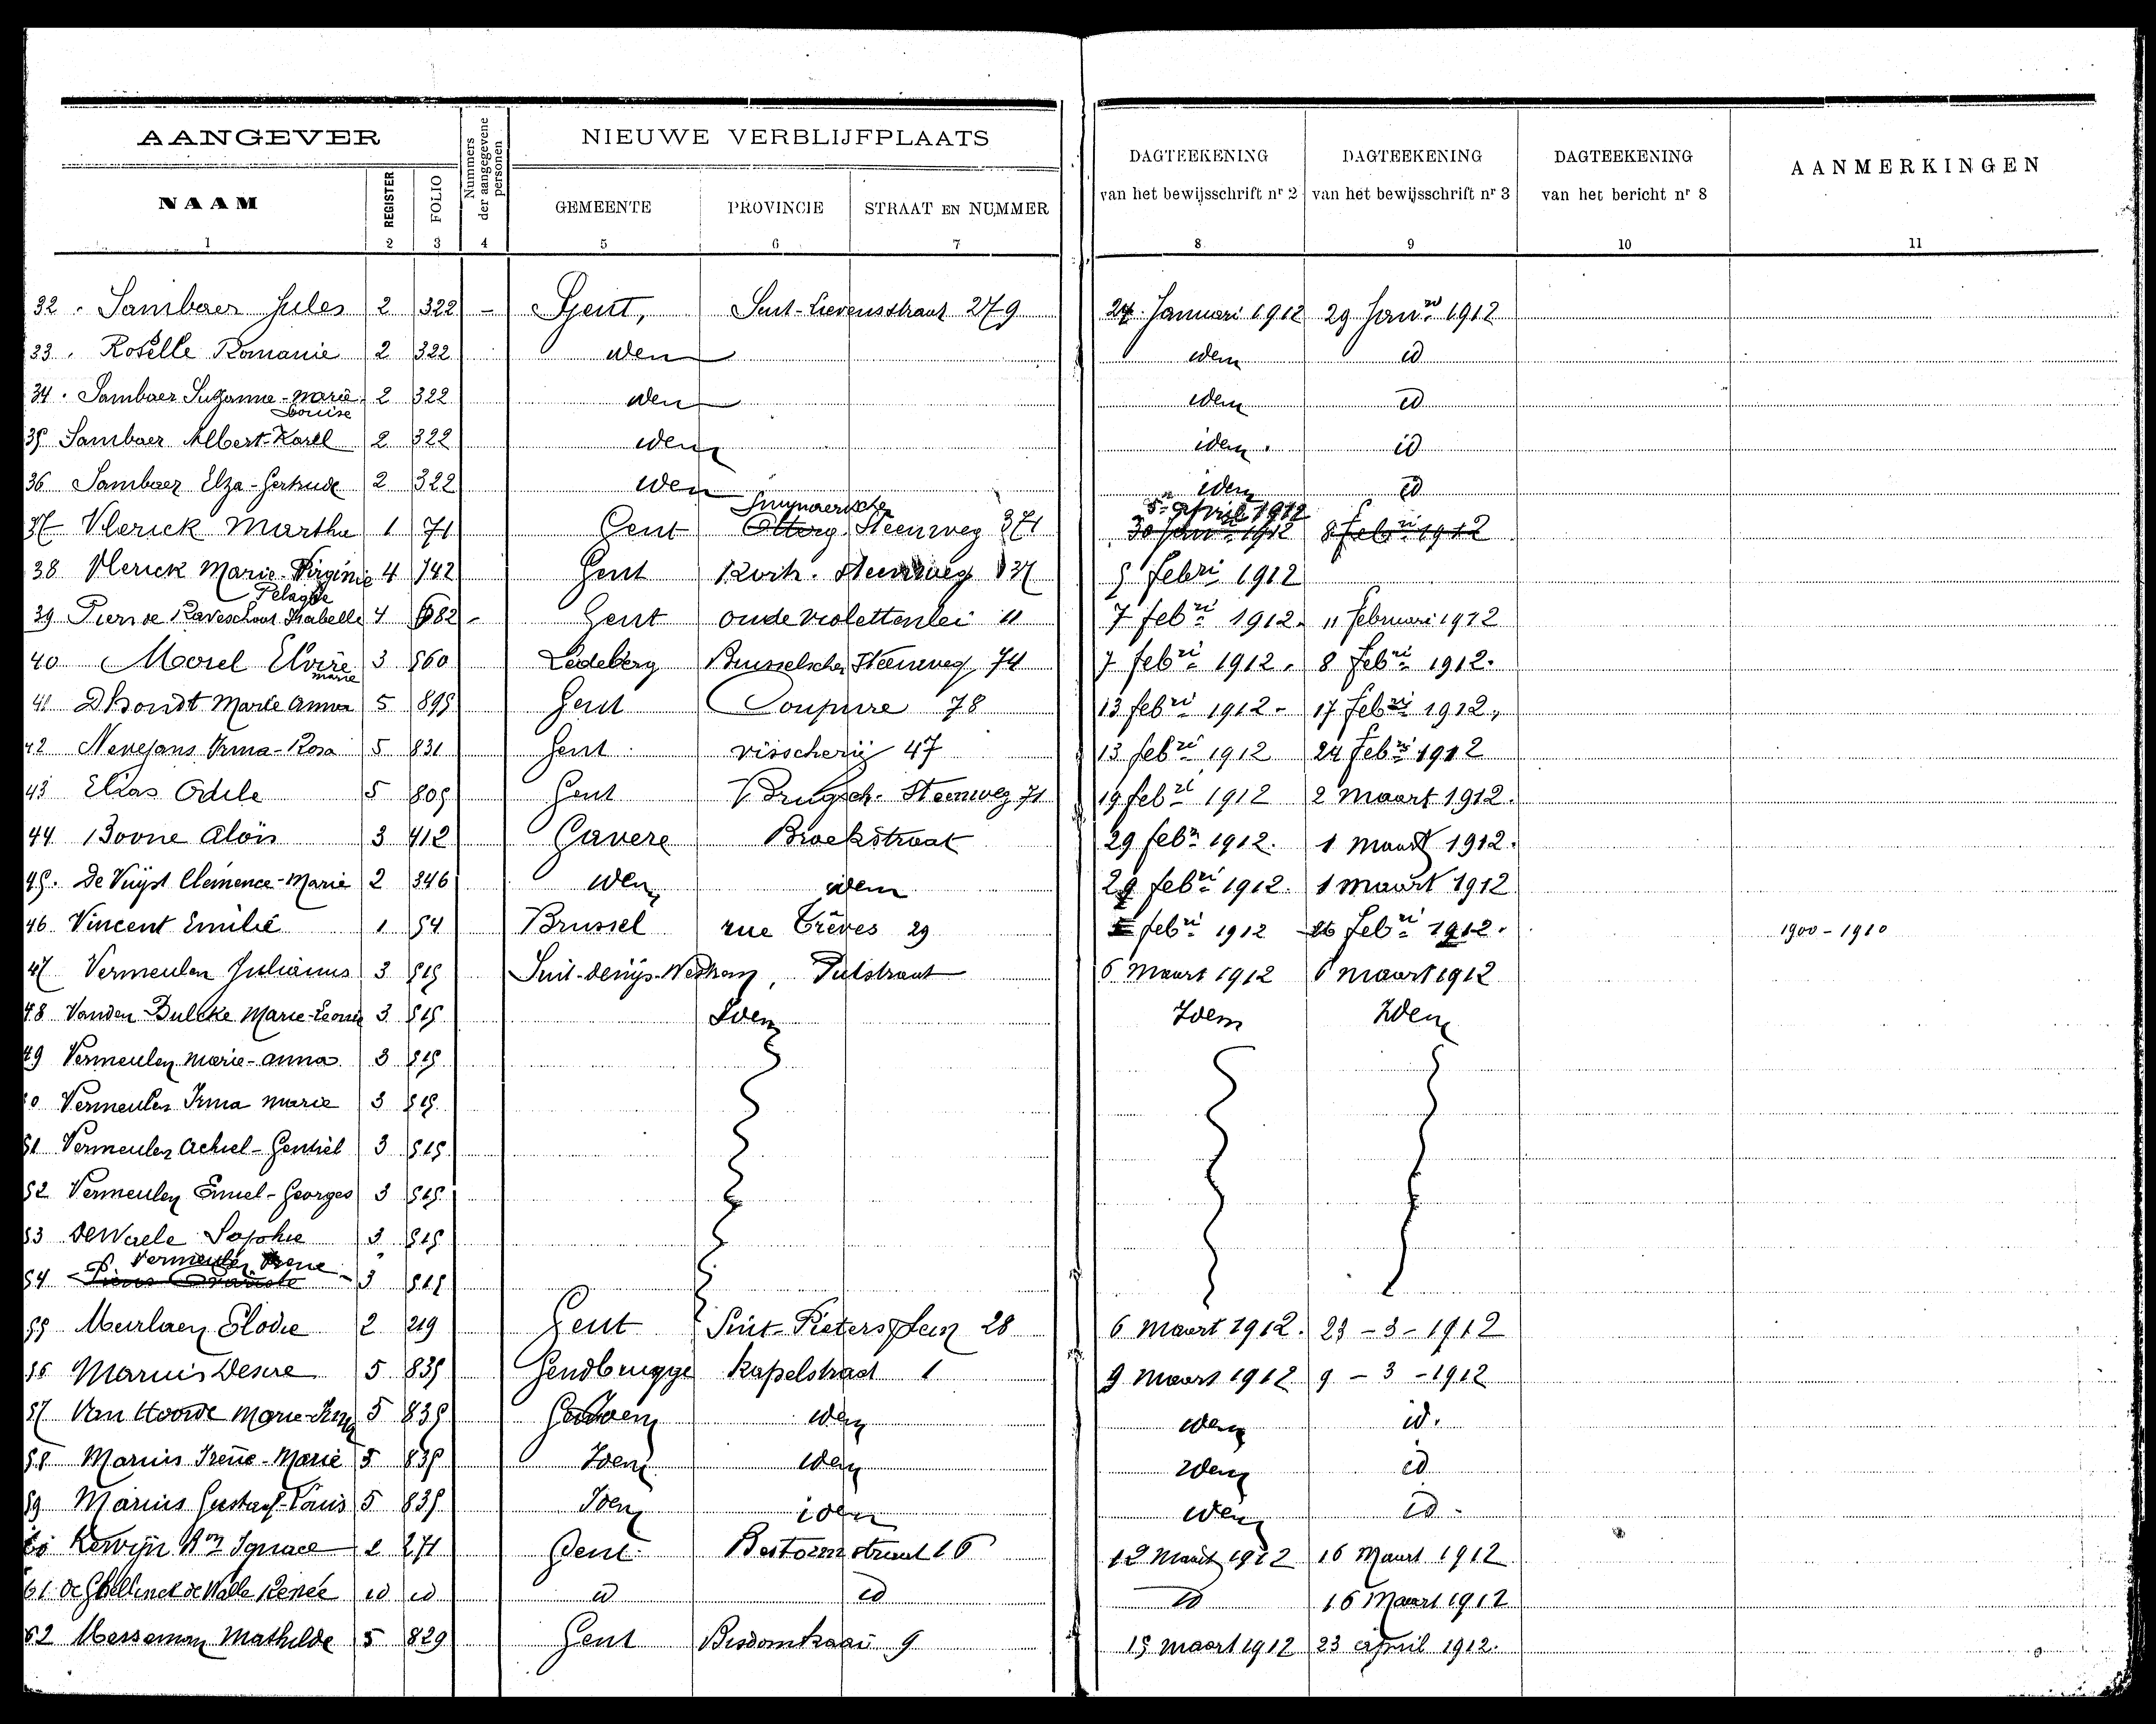 AANGEVER
Nummers der aangegevene personen
NIEUWE VERBLIJFPLAATS
NAAM REGISTER FOLIO GEMEENTE PROVINCIE STRAAT EN NUMMER
DAGTEEKENING van het bewijsschrift nr 2 DAGTEEKENING van het bewijsschrift nr 3 DAGTEEKENING van het bericht nr 8 AANMERKINGEN
1 2 3 4 5 6 7 8 9 10 11
32 . Sambaer Jules 2 322 - Gent, Sint-Lievensstraat 279 27 Januari 1912 29 Janri 1912
33 . Roselle Romanie 2 322 idem idem id
34 . Sambaer Suzanne-Marie Louise 2 322 idem idem id
35 Sambaer Albert-Karel 2 322 idem idem . id
36 Sambaer Elza-Gertrude 2 322 idem idem id
37 Vlerick Martha 1 71 Gent Steenweg 371 5 April 1912 30 Janri 1912 8 Febri 1912
38 Vlerick Marie-Virginie Pelagie 4 742 Gent Kortr. Steenweg 137 5 Febri 1912
39 Isabelle 4 682 - Gent oude violettenlei 11 7 febri 1912. 11 Februari 1912
40 Morel Elvire marie 3 560 Ledeberg Brusselsche Steenweg 74 7 febri 1912. 8 Febri 1912.
41 Dhondt Marie Anna 5 895 Gent Coupure 78 13 febri 1912 - 17 Febri 1912,
42 Nevejans Irma-Rosa 5 831 Gent visscherij 47 13 febri 1912 24 Febri 1912
43 Elias Odile 5 805 Gent Brugsch. Steenweg 71 19 febri 1912 2 Maart 1912.
44 Bovne Aloïs 3 412 Gavere Broekstraat 29 febri 1912. 1 Maart 1912.
45. De Vuijst Clémence-Marie 2 346 idem idem 29 febri 1912. 1 Maart 1912
46 Vincent Emilie 1 54 Brussel rue Trêves 29 febri 1912 26 Febri 1912. 1900 - 1910
47 Vermeulen Julianus 3 515 Sint-denijs-Westrem, Putstraat 6 Maart 1912 6 maart 1912
48 Vanden Bulcke Marie-Leonie 3 515 Idem Idem Idem
49 Vermeulen Marie-anna 3 515
50 Vermeulen Irma marie 3 515
51 Vermeulen Achiel-Gentiel 3 515
52 Vermeulen Emiel-Georges 3 515
53 DeWaele Sophie 3 515
Vermeulen Irene
54 3 515
55 Meirlaen Elodie 2 219 Gent Sint-Pieters plein 28 6 maart 1912. 23 - 3 - 1912
56 Marius Desire 5 835 Gendbrugge Kapelstraat 1 9 maart 1912 9 - 3 - 1912
57 Van Hoorde Marie-Irma 5 835 Idem idem idem id.
58 Marius Irene-Marie 5 835 Idem idem idem id
59 Marius Gustaaf-Louis 5 835 Idem idem idem id -
60 Kervijn Bon Ignace 2 271 Gent 16 12 Maart 1912 16 Maart 1912
61 de Ghellinck de Walle Renée id id id id id 16 Maart 1912
62 Messeman Mathilde 5 829 Gent Bisdomkaai 9 15 maart 1912 23 April 1912.